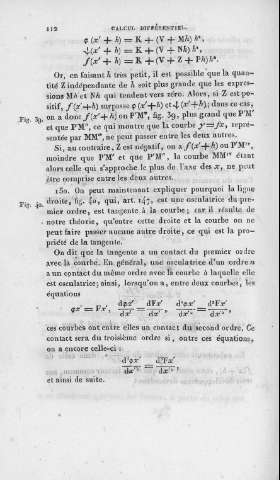 112 CALCUL DIFFÉRENTIEL.
φ(x' + h) = K + (V + Mh) hⁿ,
ψ(x' + h) = K + (V + Nh) hⁿ,
f(x' + h) = K + (V + Z + Ph) hⁿ.
Or, en faisant h très petit, il est possible que la quan-
tité Z indépendante de h soit plus grande que les expres-
sions Mh et Nh qui tendent vers zéro. Alors, si Z est po-
sitif, f(x'+h) surpasse φ(x'+h) et ψ(x'+h); dans ce cas,
Fig. 39. on a donc f(x'+h) ou P'M''', fig. 39, plus grand que P'M'
et que P'M'', ce qui montre que la courbe y=fx, repré-
sentée par MM''', ne peut passer entre les deux autres.
Si, au contraire, Z est négatif, on a f(x'+h) ou P'Mᴵⱽ,
moindre que P'M' et que P'M'', la courbe MMᴵⱽ étant
alors celle qui s'approche le plus de l'axe des x, ne peut
être comprise entre les deux autres.
150. On peut maintenant expliquer pourquoi la ligne
Fig. 40. droite, fig. 40, qui, art. 147, est une osculatrice du pre-
mier ordre, est tangente à la courbe; car il résulte de
notre théorie, qu'entre cette droite et la courbe on ne
peut faire passer aucune autre droite, ce qui est la pro-
priété de la tangente.
On dit que la tangente a un contact du premier ordre
avec la courbe. En général, une osculatrice d'un ordre n
a un contact du même ordre avec la courbe à laquelle elle
est osculatrice; ainsi, lorsqu'on a, entre deux courbes, les
équations
φx' = Fx', dφx'/dx' = dFx'/dx', d²φx'/dx'² = d²Fx'/dx'²,
ces courbes ont entre elles un contact du second ordre. Ce
contact sera du troisième ordre si, outre ces équations,
on a encore celle-ci :
d³φx'/dx'³ = d³Fx'/dx'³,
et ainsi de suite.